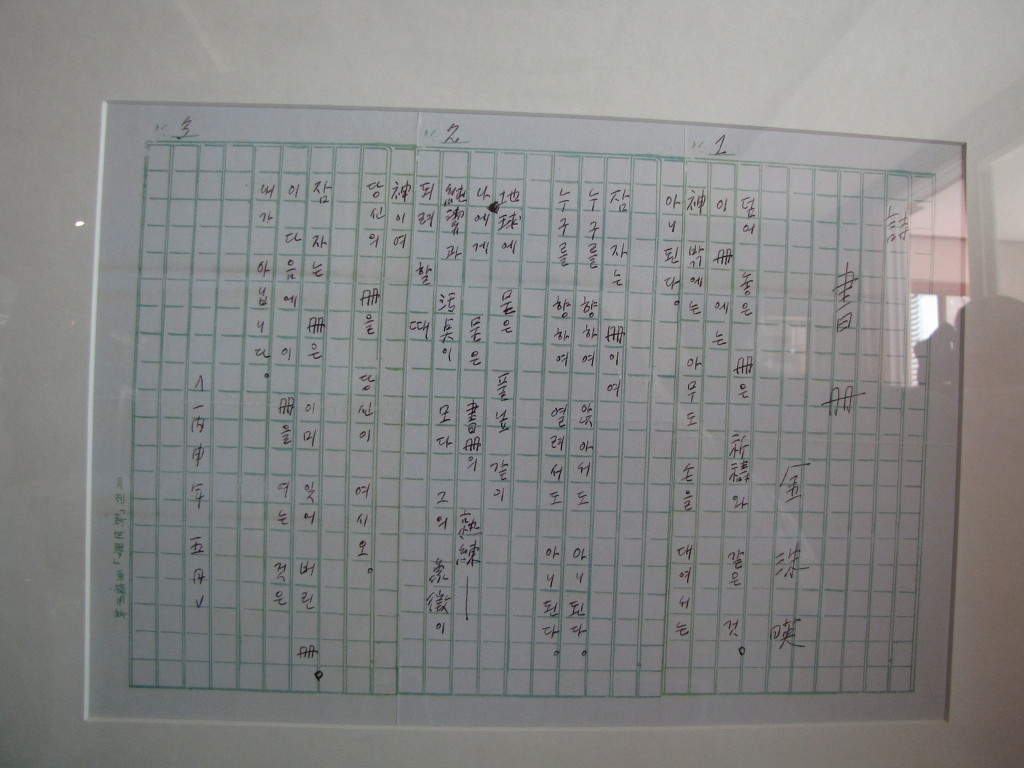 1
詩
書冊
金洙暎
덮어 놓은 冊은 祈禱와 같은 것。
이 冊에는
神밖에는 아무도 손을 대여서는
아니 된다。
잠자는 冊이여
누구를 향하여 앉아서도 아니 된다。
누구를 향하여 열려서도 아니 된다。
2
地球에 묻은 풀닢 같이
나에게 묻은 書冊의 熟練——
純潔과 汚點이 모다 그의 象徵이
되려 할 때
神이여
당신의 冊을 당신이 여시오。
3
잠자는 冊은 이미 잊어 버린 冊。
이 다음에 이 冊을 여는 것은
내가 아닙니다。
年 五月